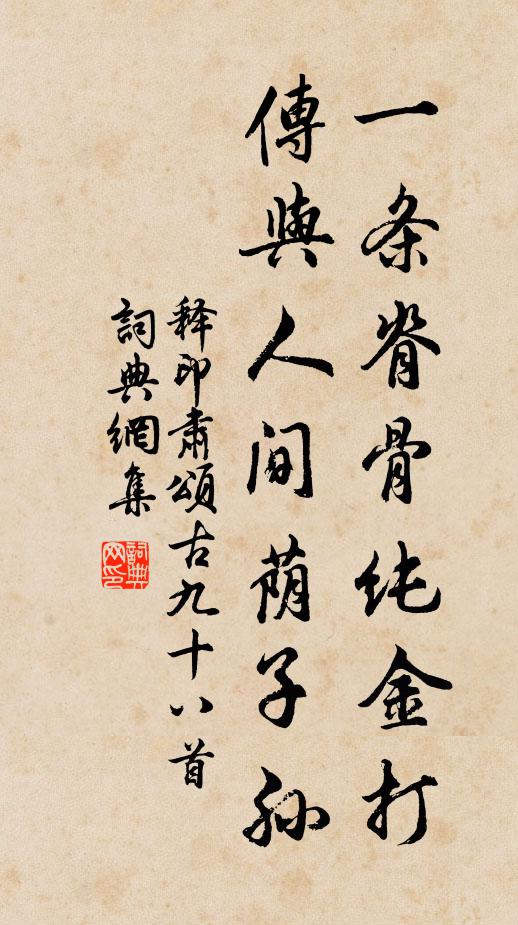 一条脊骨纯金打
傳與人间荫子孙
释印肃頌古九十八首
詞典網集
詞典网印